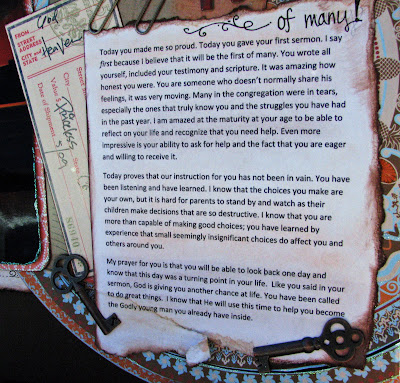 of many!
FROM God
STREET
ADDRESS
CITY and
STATE Heaven
Value $ Priceless
Date of Shipment 5/09
Today you made me so proud. Today you gave your first sermon. I say
first because I believe that it will be the first of many. You wrote all
yourself, included your testimony and scripture. It was amazing how
honest you were. You are someone who doesn't normally share his
feelings, it was very moving. Many in the congregation were in tears,
especially the ones that truly know you and the struggles you have had
in the past year. I am amazed at the maturity at your age to be able to
reflect on your life and recognize that you need help. Even more
impressive is your ability to ask for help and the fact that you are eager
and willing to receive it.
Today proves that our instruction for you has not been in vain. You have
been listening and have learned. I know that the choices you make are
your own, but it is hard for parents to stand by and watch as their
children make decisions that are so destructive. I know that you are
more than capable of making good choices; you have learned by
experience that small seemingly insignificant choices do affect you and
others around you.
My prayer for you is that you will be able to look back one day and
know that this day was a turning point in your life. Like you said in your
sermon, God is giving you another chance at life. You have been called
to do great things. I know that He will use this time to help you become
the Godly young man you already have inside.